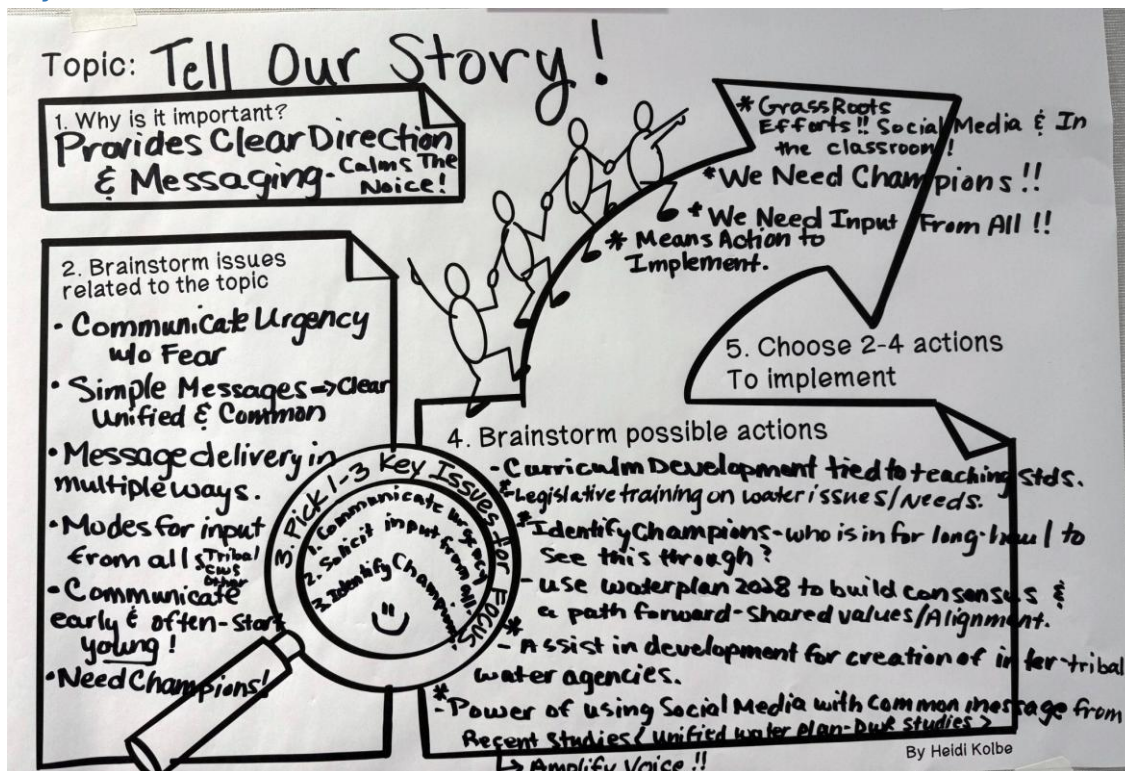 Topic: Tell Our Story!
1. Why is it important?
Provides Clear Direction
& Messaging - Calms The
Noice!
2. Brainstorm issues
related to the topic
• Communicate Urgency
w/o Fear
• Simple Messages → Clear
Unified & Common
• Message delivery in
multiple ways.
• Modes for input
from all Tribal
CWS
Other
• Communicate
early & often - Start
young!
• Need Champions!
3. Pick 1-3 Key Issues for Focus
1. Communicate urgency
2. Solicit input from all.
3. Identify Champions.
4. Brainstorm possible actions
- Curriculm Development tied to teaching stds.
*- Legislative training on water issues/Needs.
* Identify Champions - who is in for long-haul to
See this through?
- use waterplan 2028 to build consensus &
a path forward - shared values/Alignment.
*
- Assist in development for creation of inter-tribal
water agencies.
*
- Power of using Social Media with common message from
Recent Studies < unified water plan - DWR studies >
↳ Amplify Voice!!
5. Choose 2-4 actions
To implement
* Grass Roots
Efforts!! Social Media & In
the classroom!
* We Need Champions!!
* We Need Input From All!!
* Means Action to
Implement.
By Heidi Kolbe